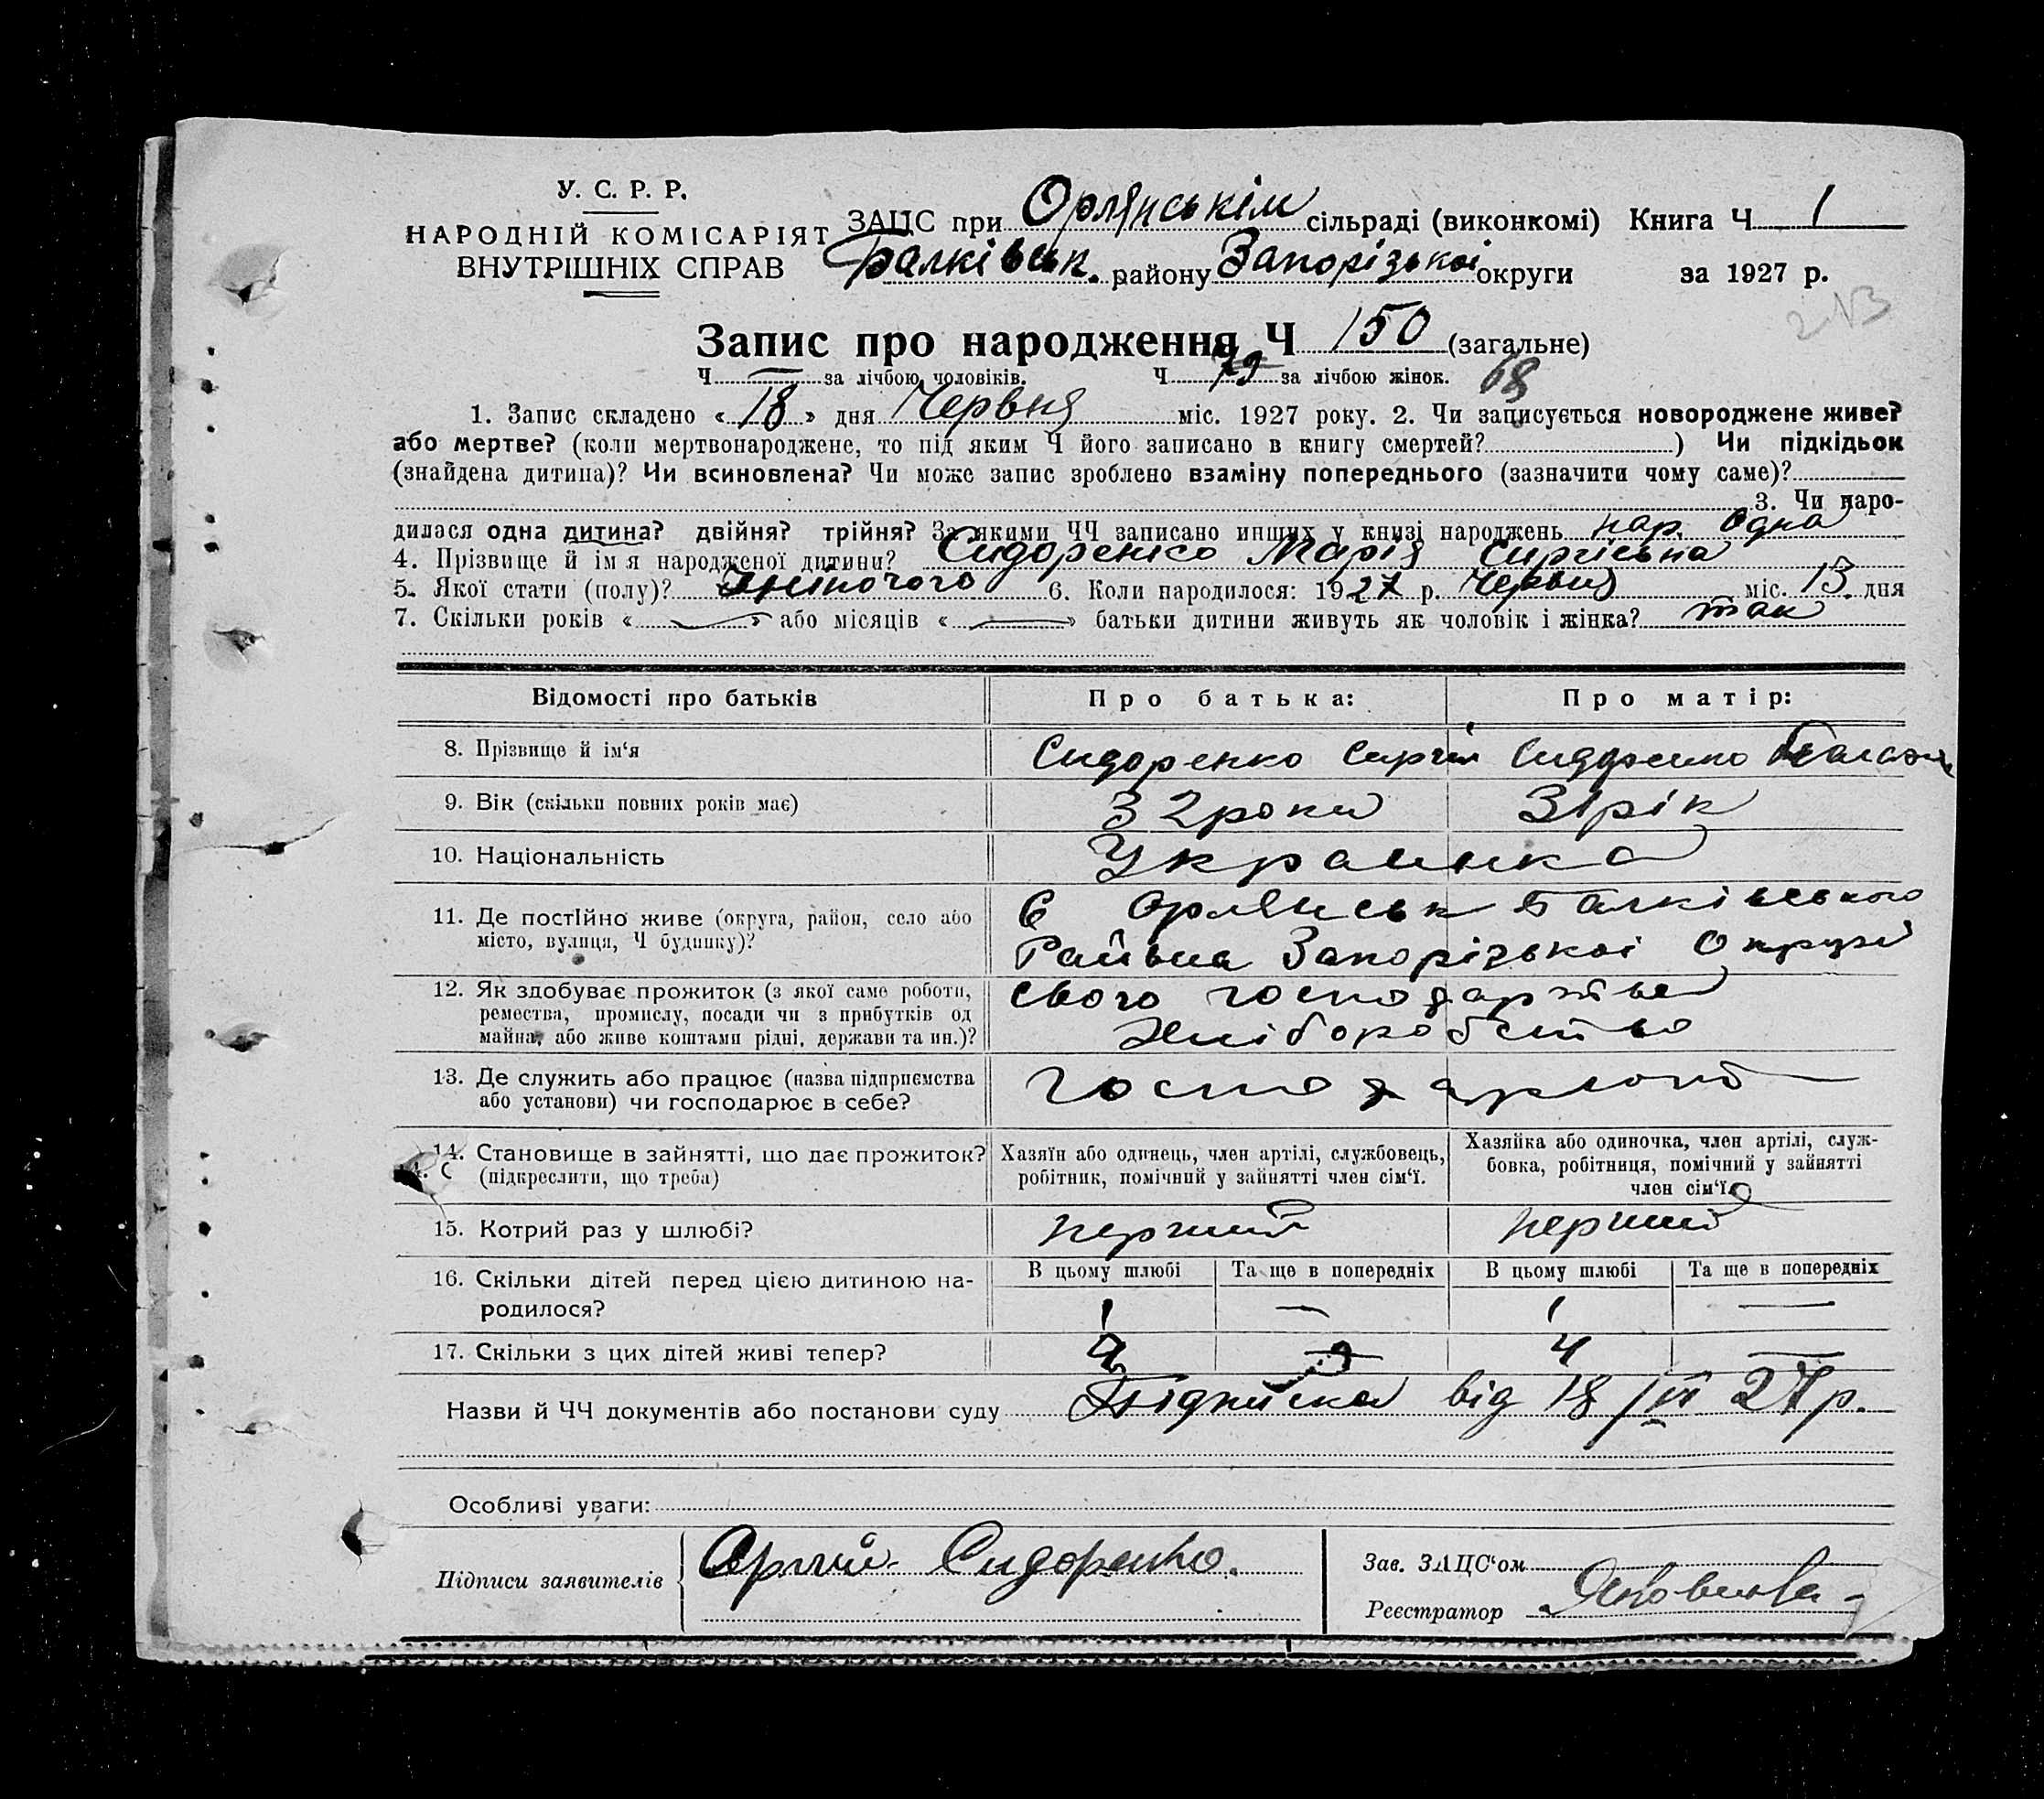 У. С. Р. Р.
НАРОДНІЙ КОМІСАРІЯТ
ВНУТРІШНІХ СПРАВ
ЗАЦС при Орлянськім сільраді (виконкомі) Книга Ч 1
Балківськ. району Запорізької округи за 1927 р.
Запис про народження Ч 150 (загальне)
Ч — за лічбою чоловіків. Ч 79 за лічбою жінок. 68
1. Запис складено «18» дня Червня міс. 1927 року. 2. Чи записується новороджене живе?
або мертве? (коли мертвонароджене, то під яким Ч його записано в книгу смертей?) Чи підкідьок
(знайдена дитина)? Чи всиновлена? Чи може запис зроблено взаміну попереднього (зазначити чому саме)?
3. Чи наро-
дилася одна дитина? двійня? трійня? За якими ЧЧ записано инших у книзі народжень нар. Одна
4. Прізвище й ім'я народженої дитини? Сидоренко Марія Сиргієвна
5. Якої стати (полу)? жіночого 6. Коли народилося: 1927 р. Червня міс. 13. дня
7. Скільки років «—» або місяців «—» батьки дитини живуть як чоловік і жінка? так
Відомості про батьків Про батька: Про матір:
8. Прізвище й ім‘я Сидоренко Сиргій Сидоренко
9. Вік (скільки повних років має) 32 роки 31 рік
10. Національність Украинка
11. Де постійно живе (округа, район, село або С Орлянськ Балківського
місто, вулиця, Ч будинку)? Района Запорізькоі Округи
12. Як здобуває прожиток (з якої саме роботи, свого господарства
ремества, промислу, посади чи з прибутків од
майна, або живе коштами рідні, держави та ин.)? Хліборобство
13. Де служить або працює (назва підприємства
або установи) чи господарює в себе?
14. Становище в зайнятті, що дає прожиток? Хазяїн або одинець, член артілі, службовець, Хазяйка або одиночка, член артілі, служ-
(підкреслити, що треба) робітник, помічний у зайнятті член сім‘ї. бовка, робітниця, помічний у зайнятті
член сім‘ї.
15. Котрий раз у шлюбі? перший перший
16. Скільки дітей перед цією дитиною на- В цьому шлюбі Та ще в попередніх В цьому шлюбі Та ще в попередніх
родилося? 1 — 1 —
17. Скільки з цих дітей живі тепер? 4 — 4 —
Назви й ЧЧ документів або постанови суду Підписка від 18/VI 27 р.
Особливі уваги:
Підписи заявителів Сргий Сидоренко.
Зав. ЗАЦС‘ом
Реєстратор